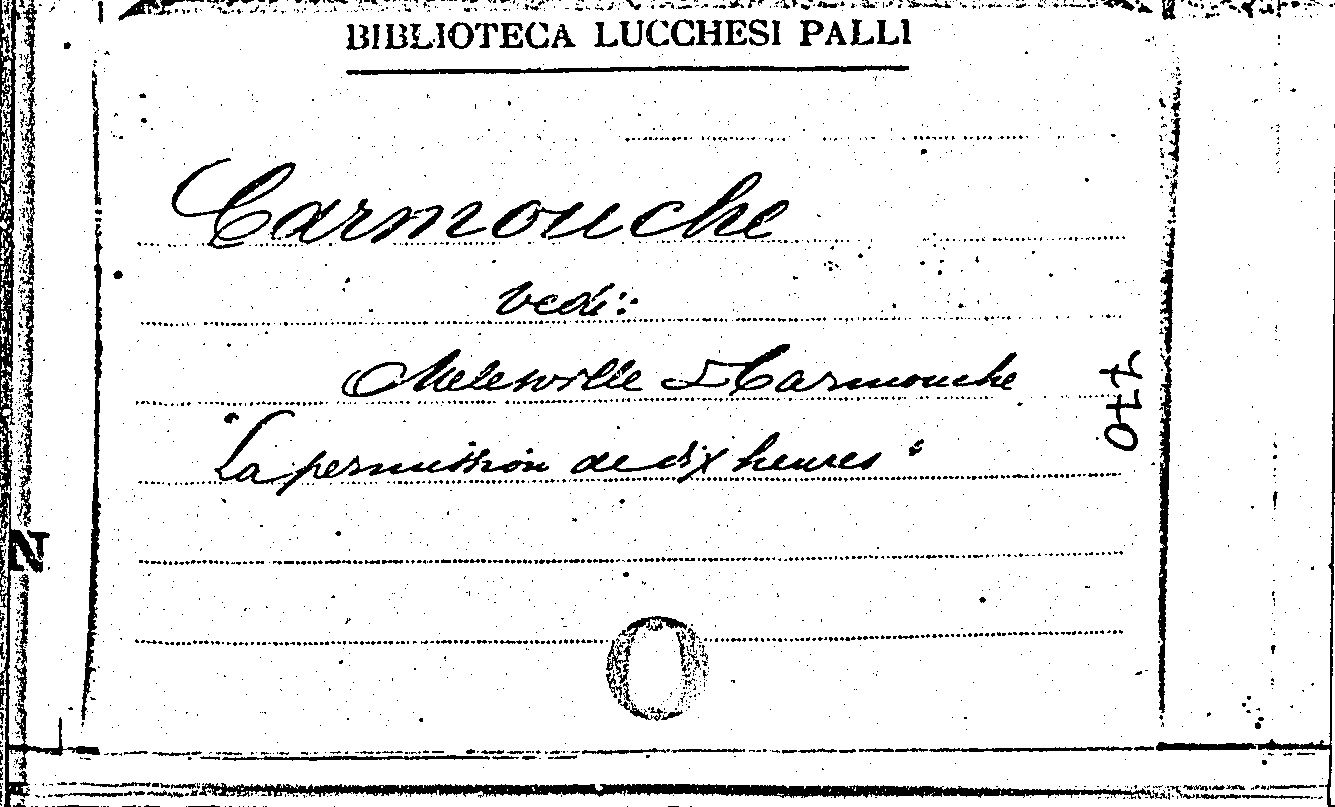 BIBLIOTECA LUCCHESI PALLI
Carmouche
vedi:
Melesville & Carmouche
"La permission de dix heures"
N